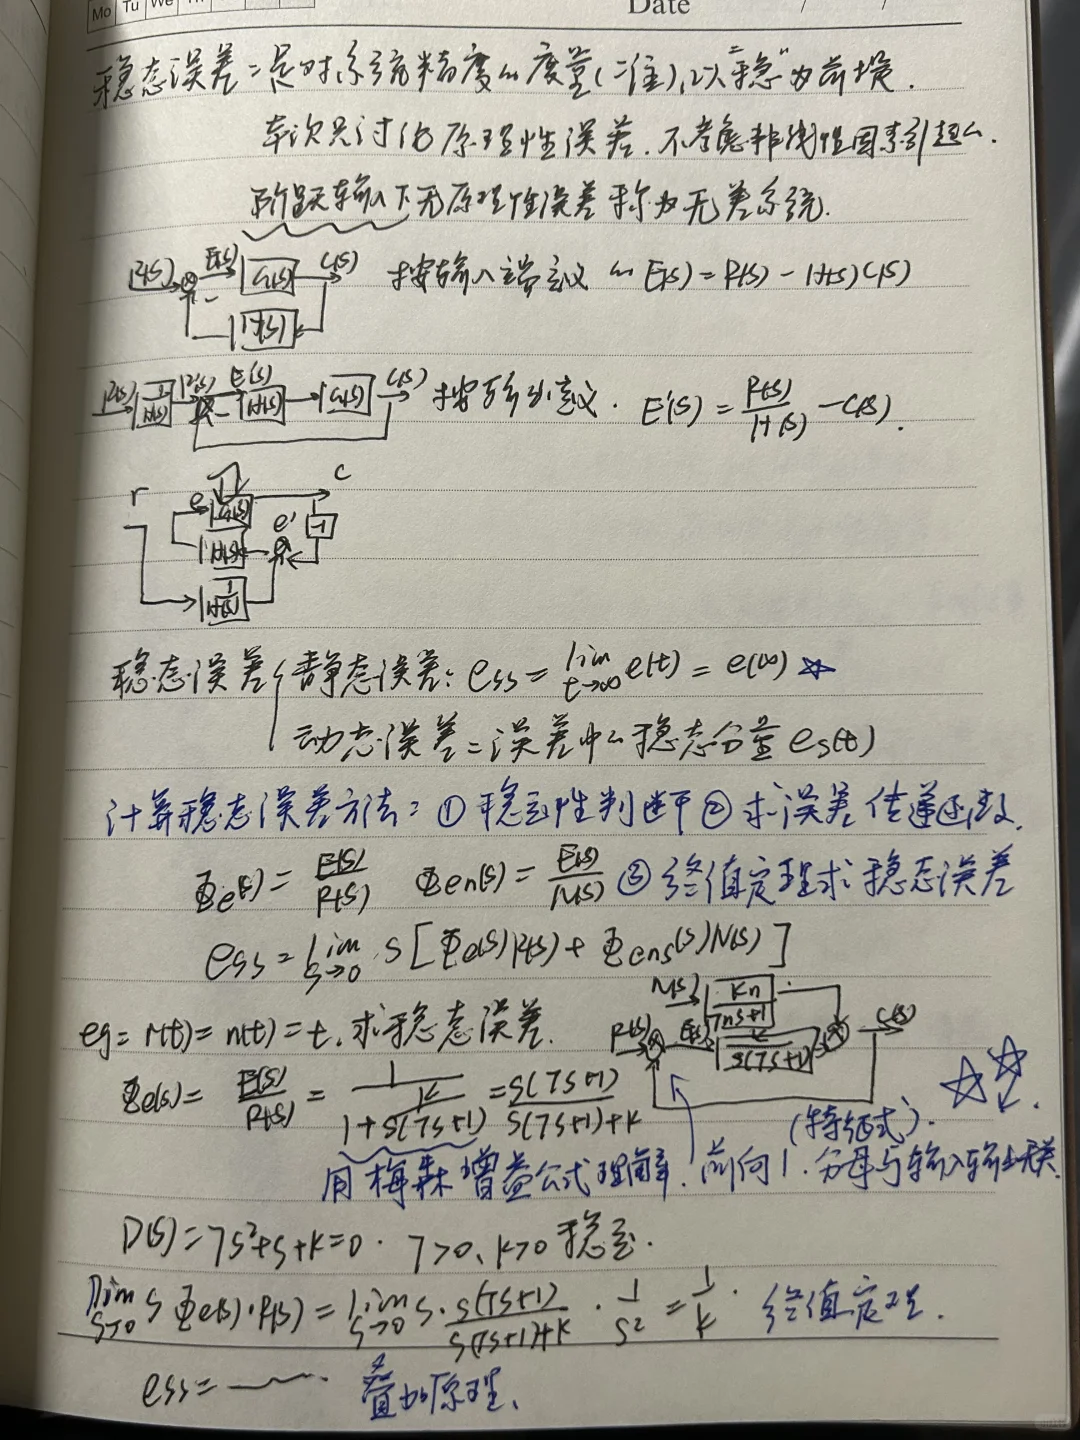 Mo Tu We
Date / /
稳态误差：是对系统精度的度量(二准),以"稳"为前提.
本次只讨论原理性误差.不考虑非线性因素引起的.
阶跃输入下无原理性误差称为无差系统.
R(s) E(s) G(s) C(s) 按输入端定义的 E(s) = R(s) - H(s)C(s)
- H(s)
R(s) 1/H(s) R'(s) E'(s) H(s) G(s) C(s) 按输出定义. E'(s) = R(s)/H(s) - C(s).
-
r e G(s) c
H(s) e' -1
1/H(s)
稳态误差{ 静态误差: ess = lim t→∞ e(t) = e(∞) ☆
动态误差：误差中的稳态分量 es(t)
计算稳态误差方法：① 稳定性判断 ② 求误差传递函数.
Φe(s) = E(s)/R(s) Φen(s) = E(s)/N(s) ③ 终值定理求稳态误差
ess = lim s→0 s[Φe(s)R(s) + Φens(s)N(s)]
N(s) Kn/(Tns+1)
eg: r(t) = n(t) = t. 求稳态误差. R(s) E(s) K/s(Ts+1) C(s)
-
Φe(s) = E(s)/R(s) = 1/(1+K/s(Ts+1)) = s(Ts+1)/(s(Ts+1)+K) ☆☆
(特征式).
用梅森增益公式理解. 前向1. 分母与输入输出无关.
D(s) = Ts²+s+K=0. T>0、K>0 稳定.
lim s→0 s Φe(s)·R(s) = lim s→0 s· s(Ts+1)/(s(Ts+1)+K) · 1/s² = 1/K. 终值定理.
ess = 叠加原理.